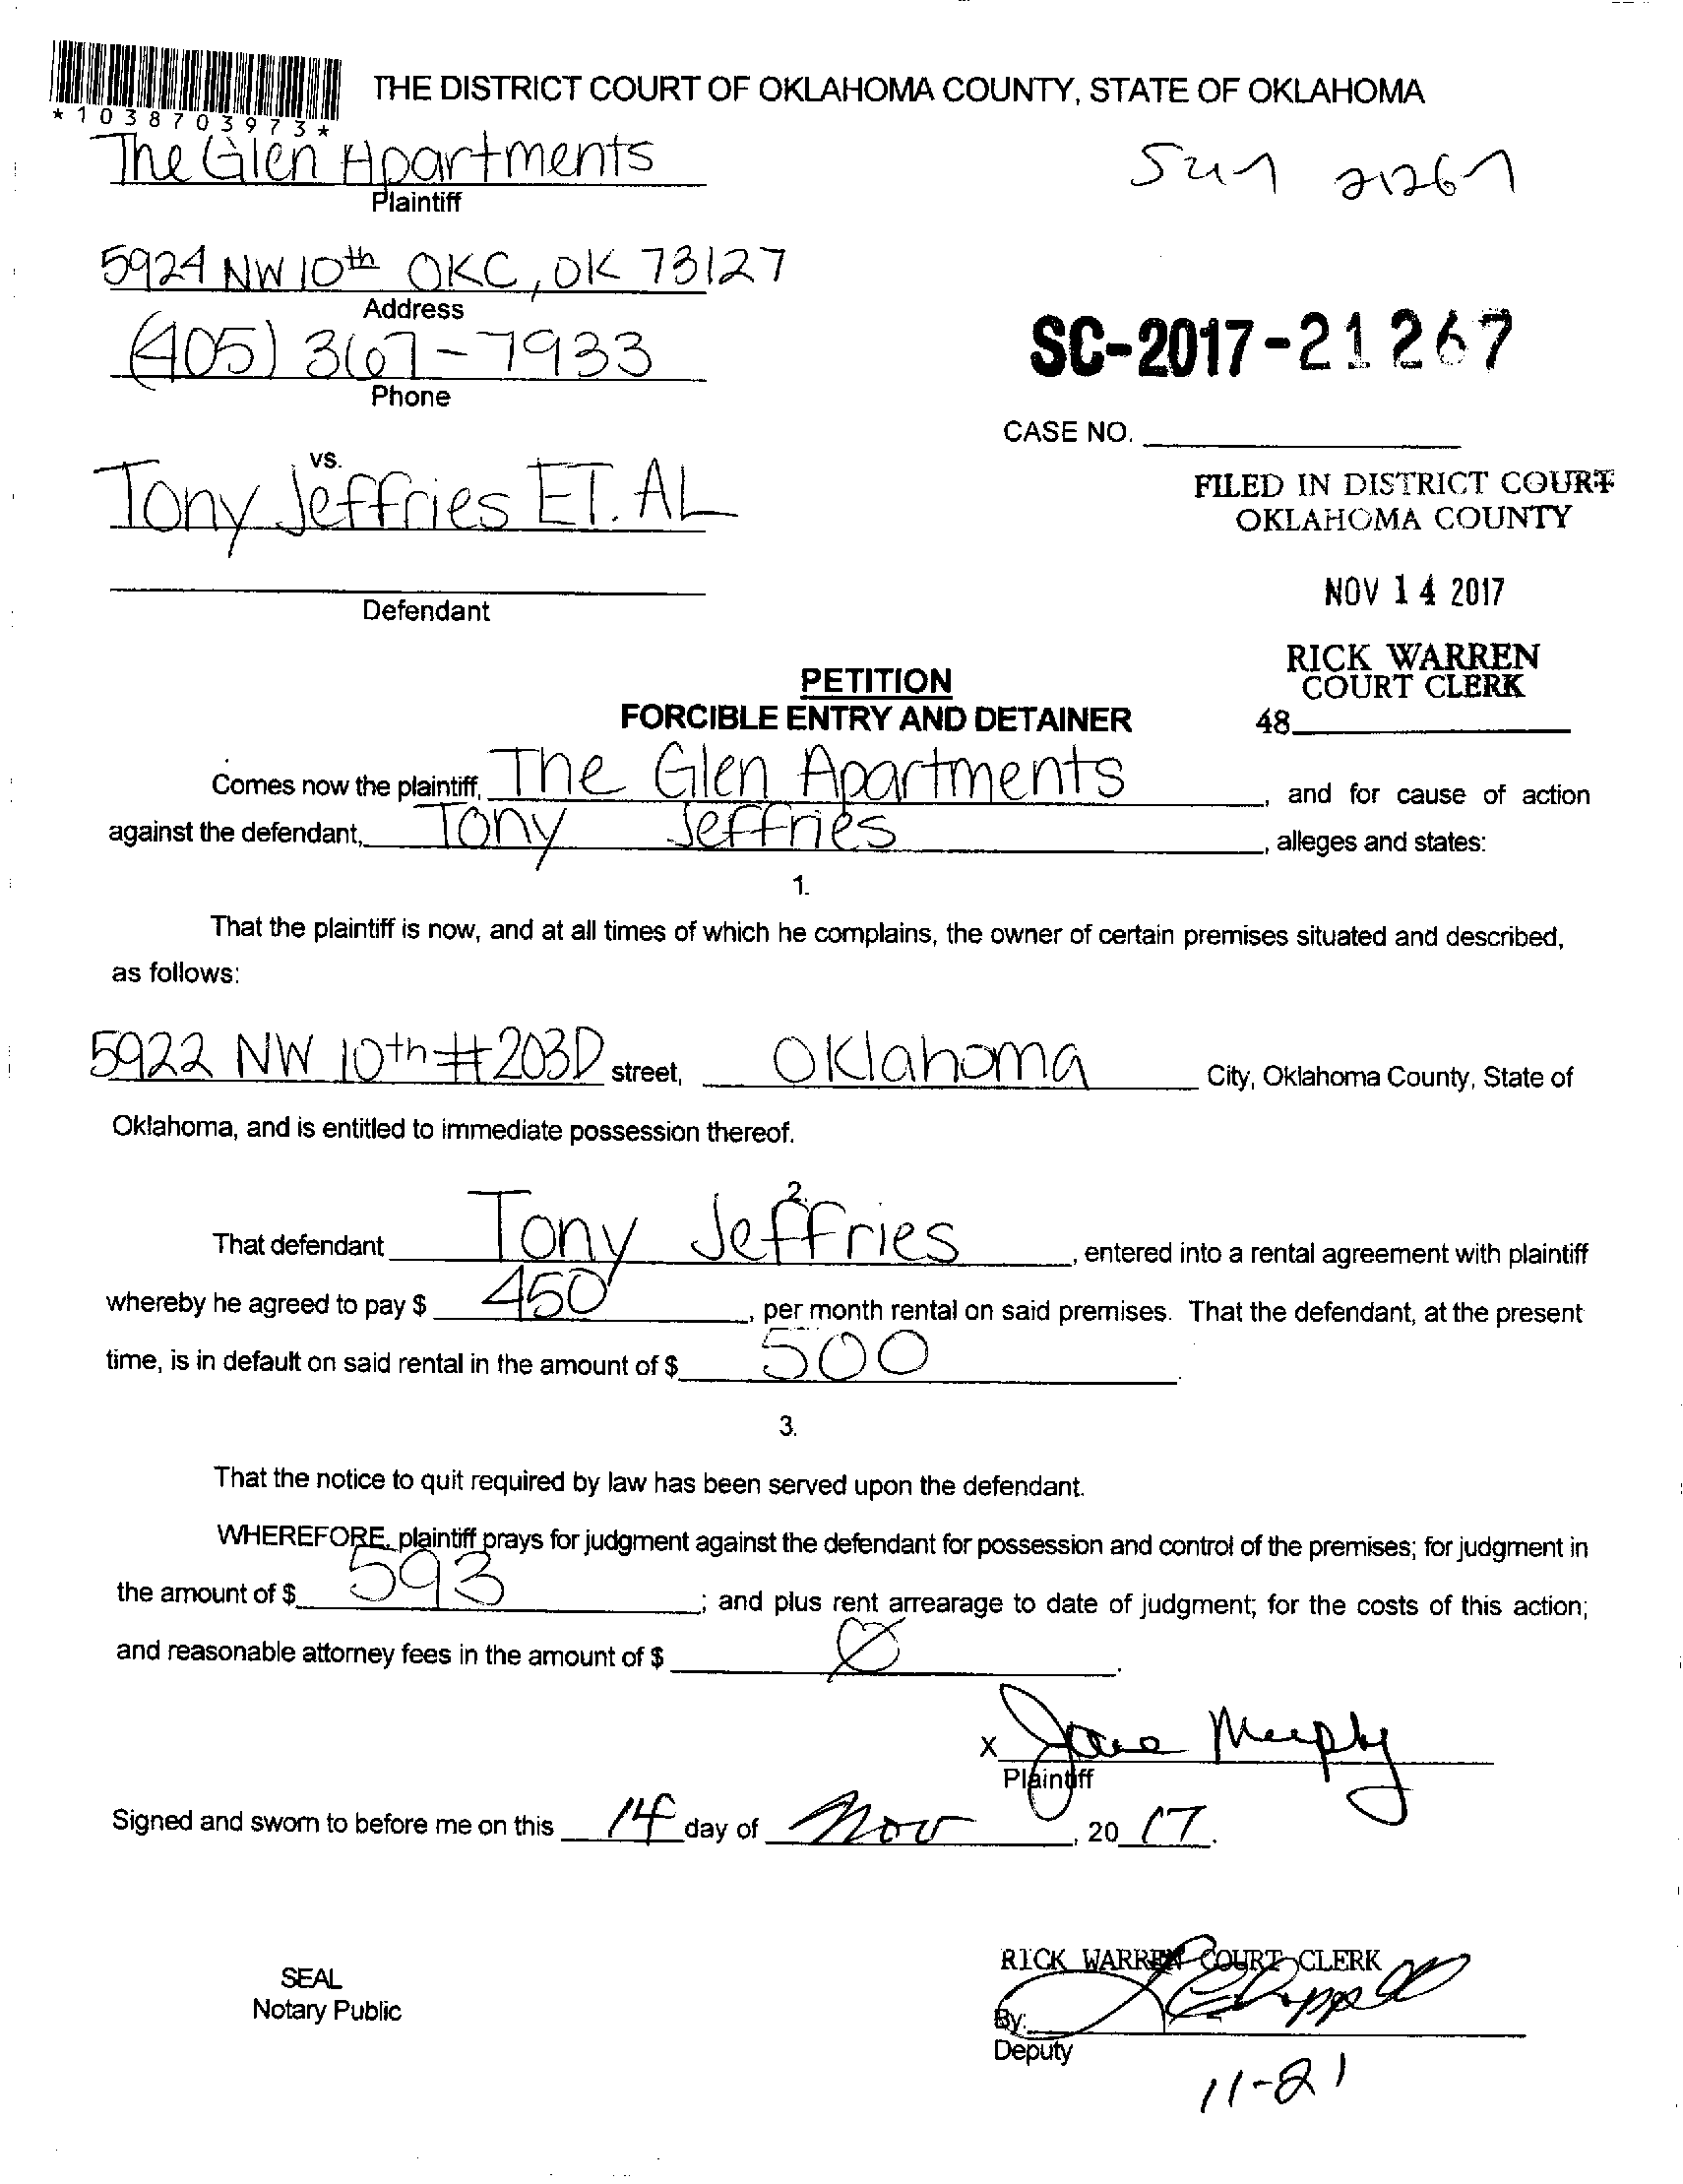 THE DISTRICT COURT OF OKLAHOMA COUNTY, STATE OF OKLAHOMA
*1038703973*
The Glen Apartments
Plaintiff
21267
5924 NW 10th OKC, OK 73127
Address
(405) 367-7933
Phone
SC-2017-21267
CASE NO.
vs.
Tony Jeffries ET. AL
FILED IN DISTRICT COURT
OKLAHOMA COUNTY
Defendant
NOV 14 2017
RICK WARREN
COURT CLERK
48
PETITION
FORCIBLE ENTRY AND DETAINER
Comes now the plaintiff, The Glen Apartments, and for cause of action
against the defendant, Tony Jeffries, alleges and states:
1.
That the plaintiff is now, and at all times of which he complains, the owner of certain premises situated and described,
as follows:
5922 NW 10th #203D street, Oklahoma City, Oklahoma County, State of
Oklahoma, and is entitled to immediate possession thereof.
2.
That defendant Tony Jeffries, entered into a rental agreement with plaintiff
whereby he agreed to pay $ 450, per month rental on said premises. That the defendant, at the present
time, is in default on said rental in the amount of $ 500.
3.
That the notice to quit required by law has been served upon the defendant.
WHEREFORE, plaintiff prays for judgment against the defendant for possession and control of the premises; for judgment in
the amount of $ 593; and plus rent arrearage to date of judgment; for the costs of this action;
and reasonable attorney fees in the amount of $ Ø.
X Jane Murphy
Plaintiff
Signed and sworn to before me on this 14 day of Nov, 20 17.
SEAL
Notary Public
RICK WARREN COURT CLERK
By:
Deputy
11-21